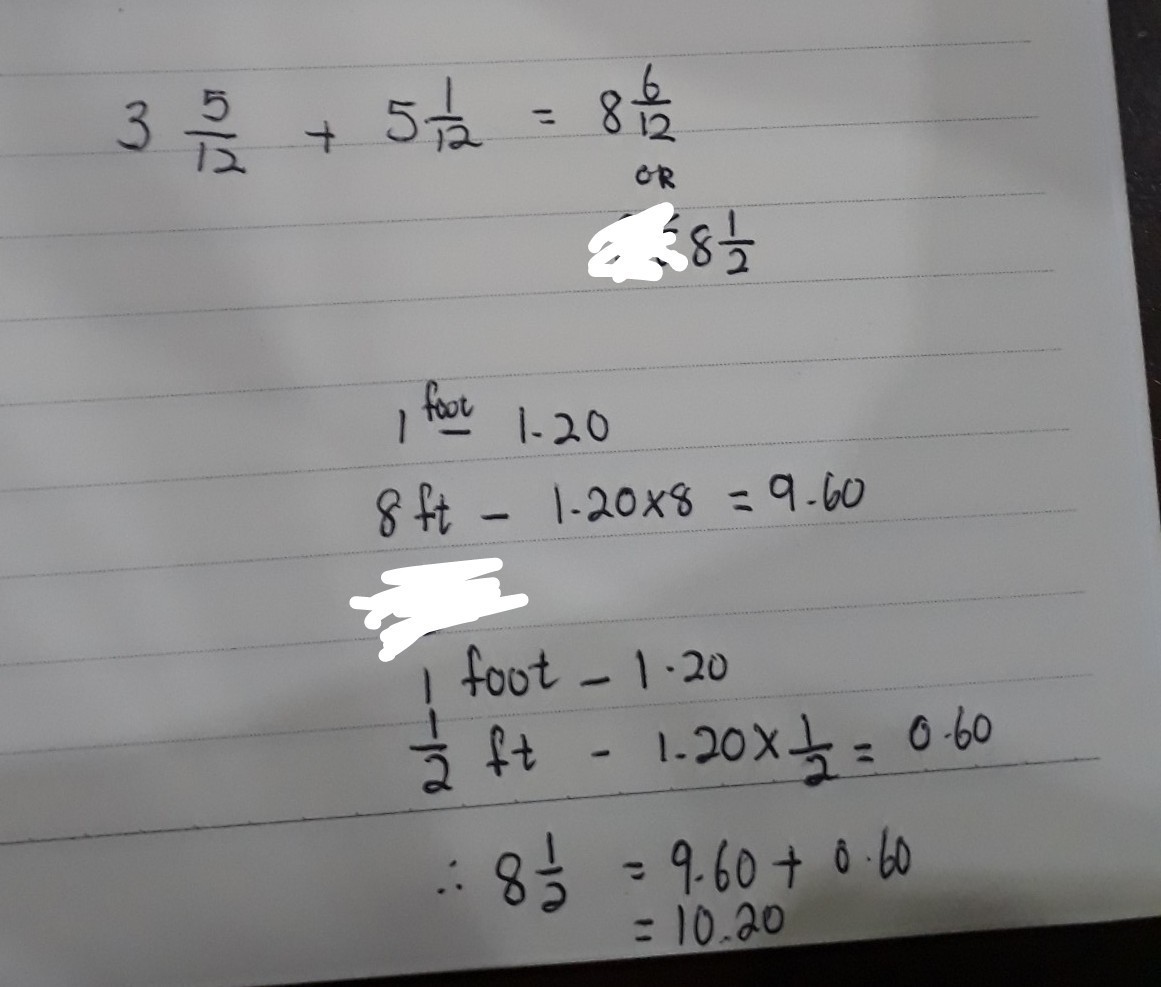 3 5/12 + 5 1/12 = 8 6/12
OR
8 1/2
1 foot 1.20
8 ft - 1.20x8 = 9.60
1 foot - 1.20
1/2 ft - 1.20x1/2 = 0.60
∴ 8 1/2 = 9.60 + 0.60
= 10.20